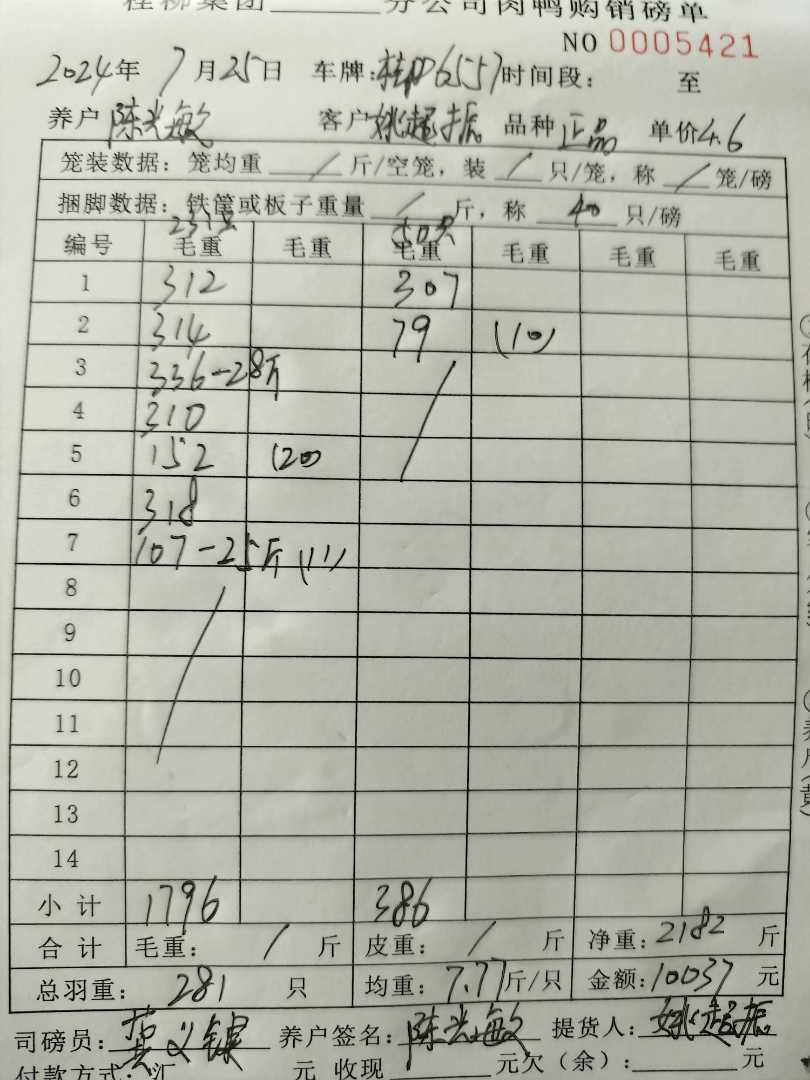 桂柳集团______分公司肉鸭购销磅单
NO 0005421
2024年 7月25日 车牌:桂P6557 时间段: 至
养户 陈光敏 客户 姚超振 品种 正品 单价4.6
笼装数据: 笼均重 / 斤/空笼, 装 / 只/笼, 称 / 笼/磅
捆脚数据: 铁筐或板子重量 / 斤, 称 40 只/磅
231只 50只
编号 毛重 毛重 毛重 毛重 毛重 毛重
1 312 307
2 314 79 (10)
3 336-28斤 /
4 310
5 152 (20)
6 318
7 107-25斤 (11)
8 /
9
10
11
12
13
14
小计 1796 386
合计 毛重: / 斤 皮重: / 斤 净重: 2182 斤
总羽重: 281 只 均重: 7.77斤/只 金额: 10037 元
司磅员: 黄义 养户签名: 陈光敏 提货人: 姚超振
付款方式: 汇 元 收现______元欠(余):______元